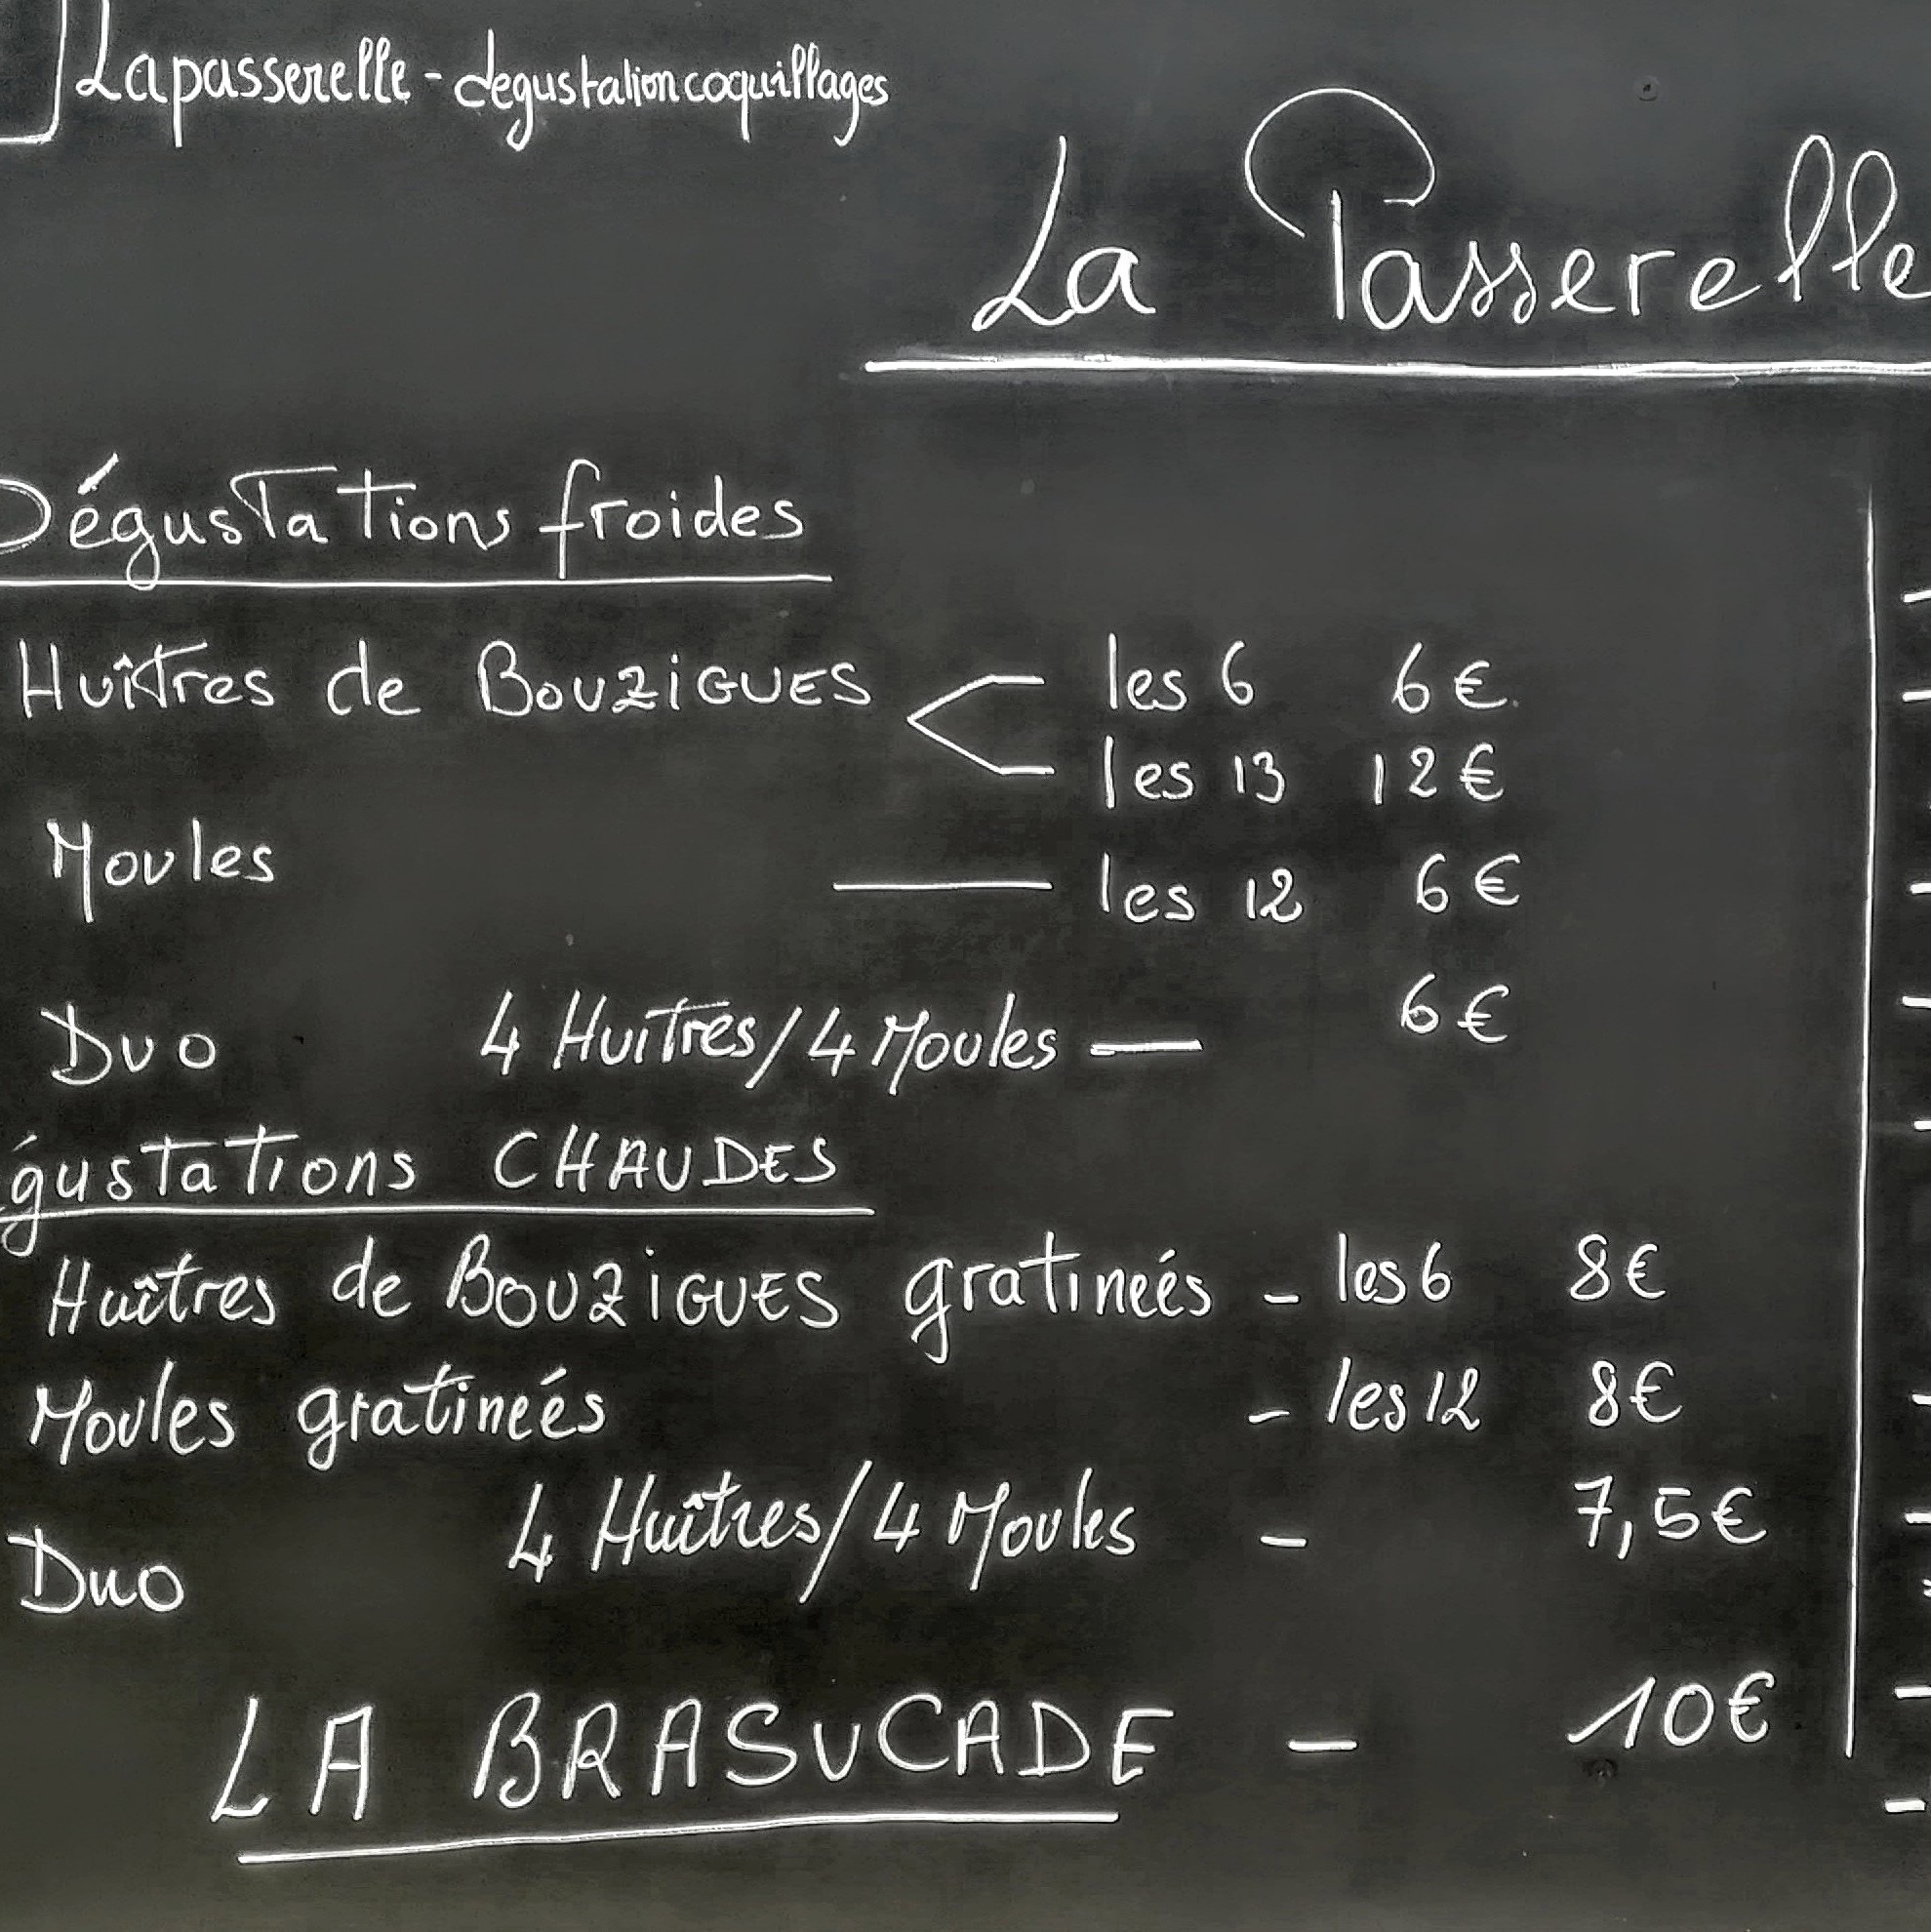 Lapasserelle - degustationcoquillages
La Passerelle
Dégustations froides
Huîtres de BOUZIGUES les 6 6€.
les 13 12€
Moules les 12 6€
Duo 4 Huîtres/4 Moules — 6€
égustations CHAUDES
Huîtres de BOUZIGUES gratineés - les 6 8€
Moules gratineés - les 12 8€
Duo 4 Huîtres/4 Moules - 7,5€
LA BRASUCADE - 10€